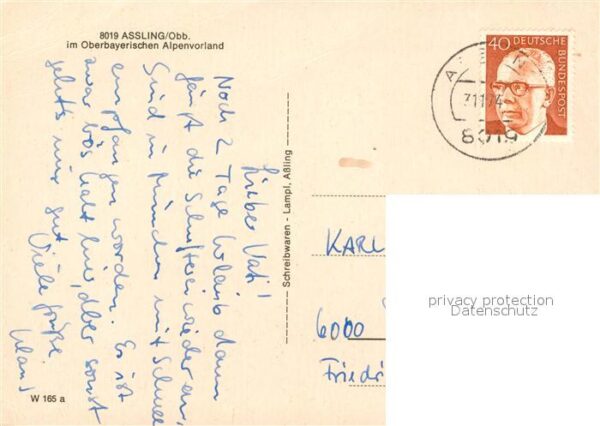 8019 ASSLING/Obb.
im Oberbayerischen Alpenvorland
Lieber Vati!
Noch 2 Tage Urlaub dann
fängt die Schufterei wieder an,
Sind in München mit Schnee
empfangen worden. Es ist
zwar bös kalt hier, aber sonst
geht's mir gut
Viele Grüße
Klaus
W 165 a
Schreibwaren - Lampl, Aßling
40 DEUTSCHE
BUNDESPOST
8019
KARL
6000
Friedr
privacy protection
Datenschutz